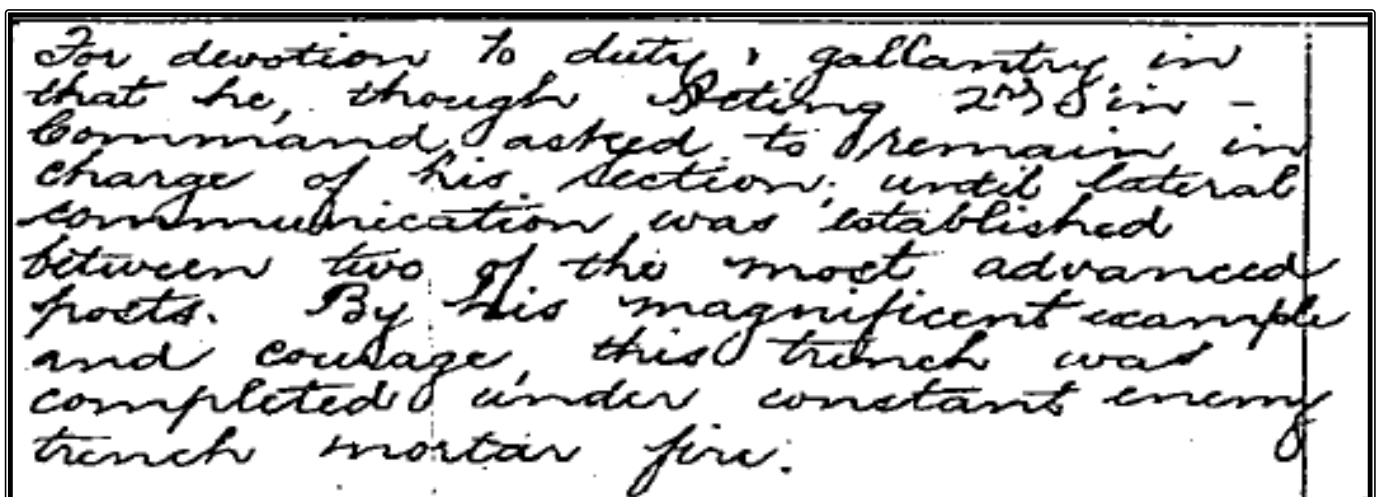 For devotion to duty & gallantry in
that he, though Acting 2nd in -
Command asked to remain in
charge of his section, until lateral
communication was established
between two of the most advanced
posts. By his magnificent example
and courage, this trench was
completed under constant enemy
trench mortar fire.